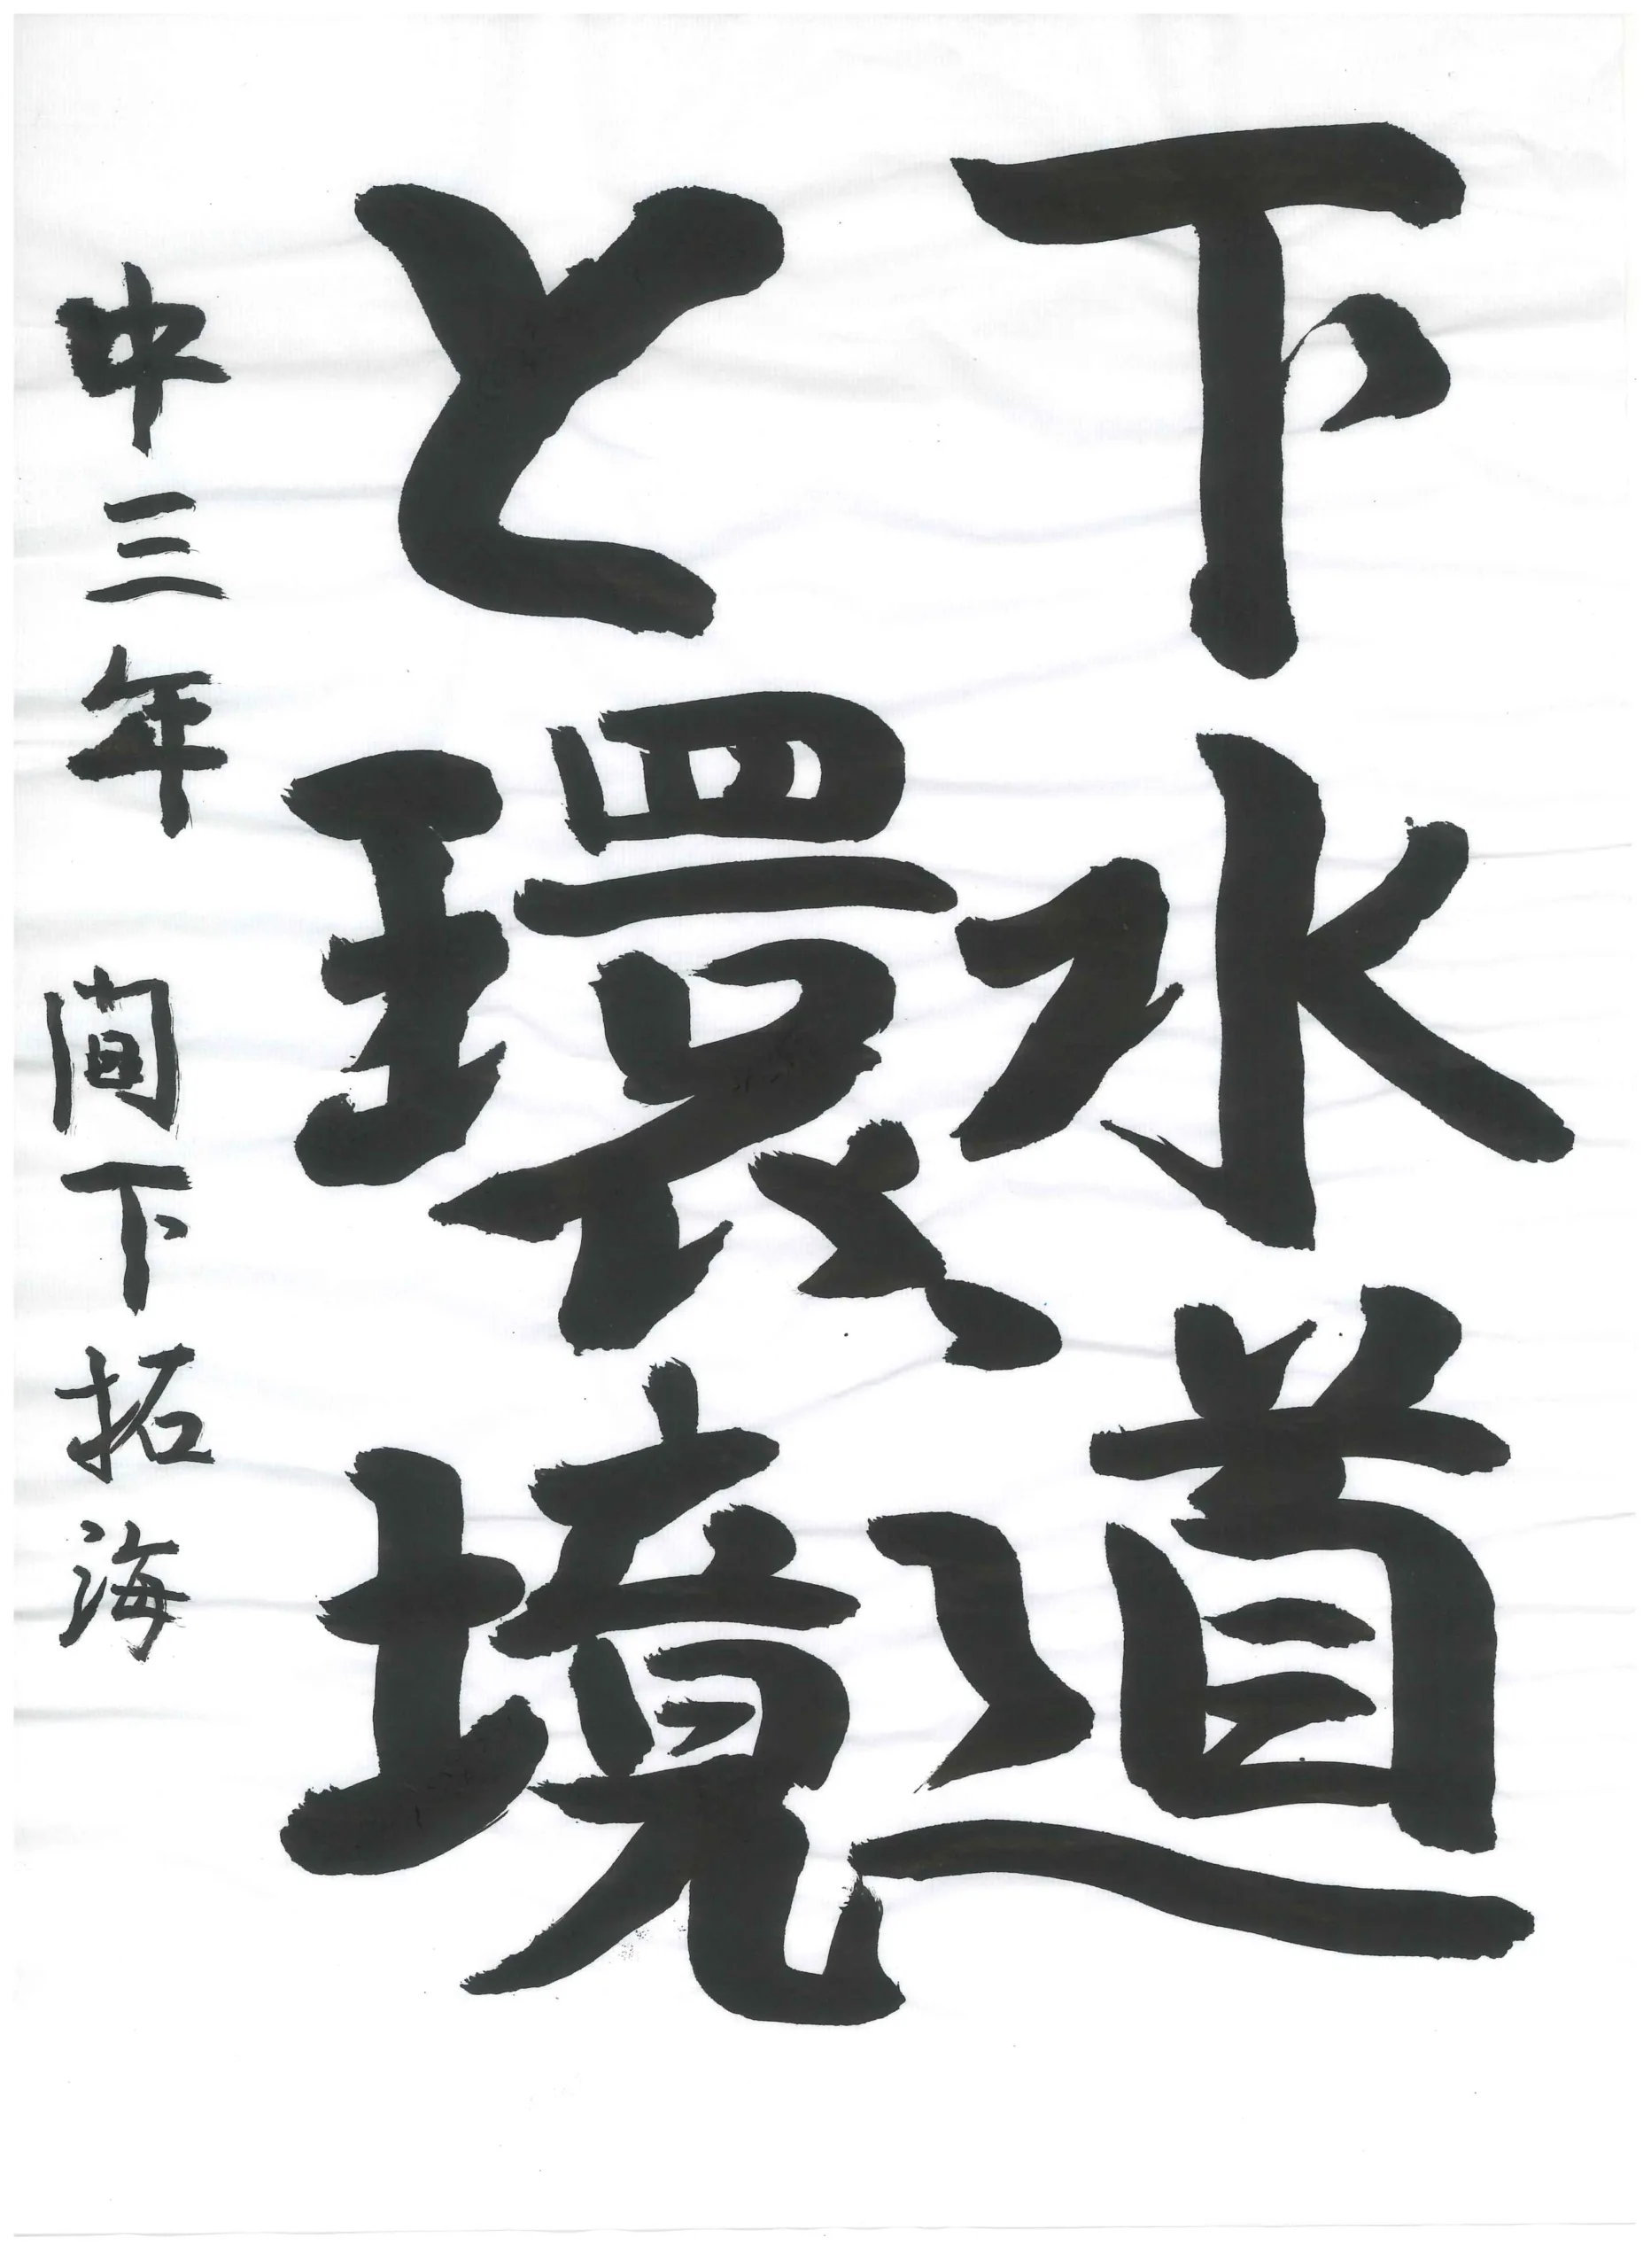 下水道
と環境
中三年 間下拓海